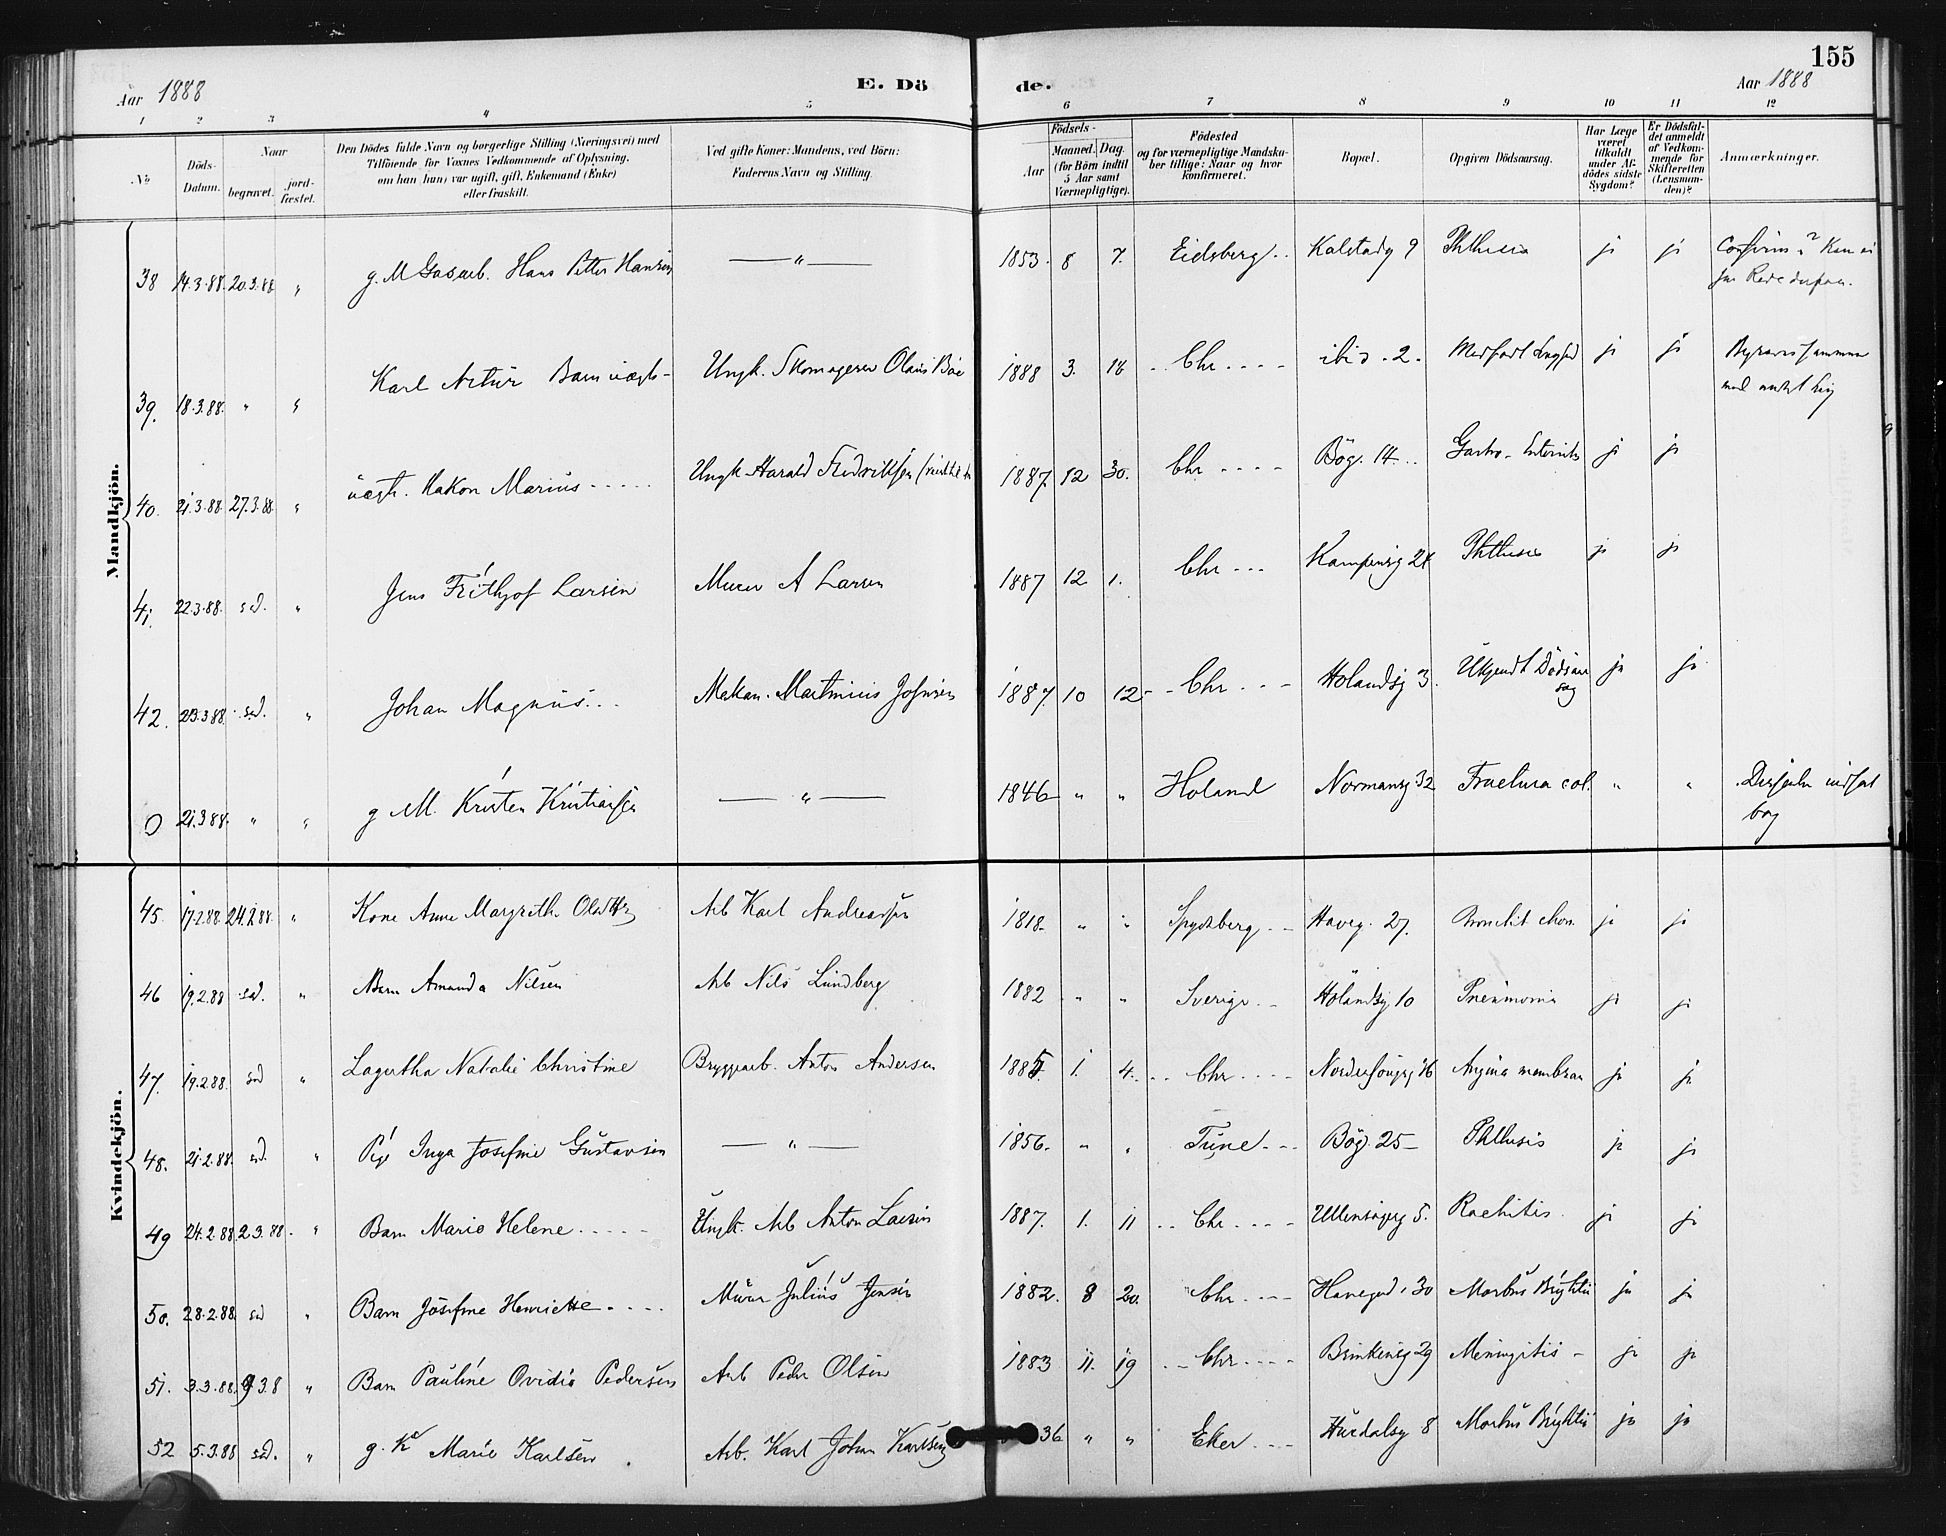 155
Aar 1888 E. Dö de. Aar 1888
1 2 3 4 5 6 7 8 9 10 11 12
No
Döds-Datum.
Naar
begravet.
jord-fæstet.
Den Dödes fulde Navn og borgerlige Stilling (Næringsvei) med
Tilföiende for Voxnes Vedkommende af Oplysning,
om han (hun) var ugift, gift, Enkemand (Enke)
eller fraskilt.
Ved gifte Koner: Mandens, ved Börn:
Faderens Navn og Stilling.
Födsels-
Aar
Maaned. Dag.
(for Börn indtil
5 Aar samt
Værnepligtige).
Födested
og for værnepligtige Mandska-
ber tillige: Naar og hvor
konfirmeret.
Bopæl.
Opgiven Dödsaarsag.
Har Læge
været
tilkaldt
under Af-
dödes sidste
Sygdom?
Er Dödsfal-
det anmeldt
af Vedkom-
mende for
Skifteretten
(Lensman-
den)?
Anmærkninger.
Mandkjön.
38 14.3.88. 20.3.88 " g. M Gasarb. Hans Petter Hansen — " — 1853. 8 7. Eidsberg.. Kalstadg 9 Phthisis ja ja
39. 18.3.88. " " Karl Artur Barn uægte- Ungk. Skomager Olaus Boe 1888 3. 18 .. Chr .... ibid. 2. Medfødt ja ja
40. 21.3.88 27.3.88 " uægte. Hakon Marius ..... Ungk. Harald Fredriksen 1887 12 30. Chr .... Bög. 14... Gastro-Enterit ja ja
41. 22.3.88. sd. " Jens Frithjof Larsen Murer A Larsen 1887 12 1. Chr ... Kampensg 24 Phthisis ja ja
42. 23.3.88. sd. " Johan Magnus... Martinius Johnsen 1887. 10 12 - Chr .. - Holandsg 3. Ukjendt Dödsaar
sag ja ja
0 21.3.88. " " g M. Kristen Kristiansen — " — 1846 " " Holand Normansg 32 Fractura col. " "
Kvindekjön.
45. 17.2.88 24.2.88 " Kone Anne Margrethe Olsdtr Arb Karl Andreassen 1818. " " Spydeberg .. Haveg. 27. Bronchit chron. ja ja
46 19.2.88 sd. " Barn Amanda Nilsen Arb Nils Lundberg 1882 " " Sverige .. Hölandsg 10 Pneumonia ja ja
47. 19.2.88. sd " Lagertha Natalie Christine Bryggearb. Anton Andersen 1885. 1. 4. ... Chr .... 16 Angina membran ja ja
48. 21.2.88. sd. " Pige Inga Josefine Gustavsen — " — 1856. " " Tune ... Bög. 25 - Phthisis ja ja
49 24.2.88 2.3.88. " Barn Marie Helene ..... Ungk. Arb Anton Larsen 1887. 1. 11 .. Chr .... Ullensagerg 5. Rachitis. ja ja
50. 28.2.88. sd " Barn Josefine Henriette .... Murer Julius Jensen 1882. 8 20. Chr .... Havegd. 30 Morbus Brightii ja ja
51. 3.3.88. 9.3.8 " Barn Pauline Ovidia Pedersen Arb Peder Olsen 1883 11. 19 .. Chr .... Brinkensg 29 Meningitis - ja ja
52 5.3.88 sd. " g. K Marie Karlsen. Arb. Karl Johan Karlsen 36 " " Eker ... Hurdalsg 8 Morbus Brightii ja ja